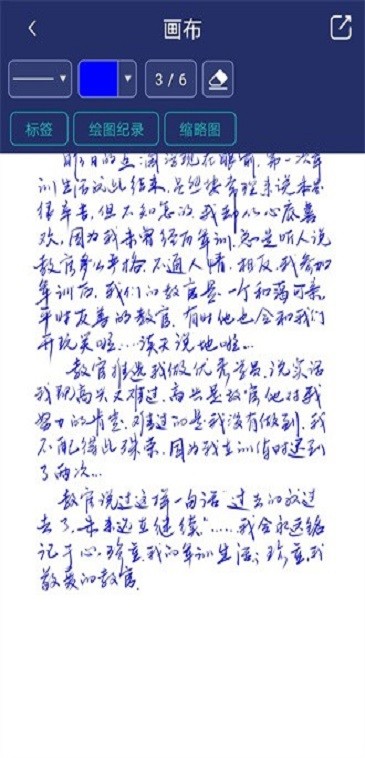 画布
3 / 6
标签
绘图纪录
缩略图
昨日的生活浮现在眼前.第一次军
训生活这此结束,虽然按常理来说本应
很辛苦,但不知怎的,我却从心底喜
欢,因为我未曾经历军训,总是听人说
教官多么严格,不通人情.相反,我参加
军训后,我们的教官是一个和蔼可亲,
平时友善的教官,有时他也会和我们
开玩笑啦....谈天说地啦...
教官推选我做优秀学员,说实话
我既高兴又难过,高兴是教官他对我
努力的肯定,难过的是我没有做到,我
不配得此殊荣,因为我在训信时迟到
了两次...
教官说过这样一句话"过去的就过
去了,未来还在继续"......我会永远铭
记于心.珍重,我的军训生活;珍重,我
敬爱的教官.